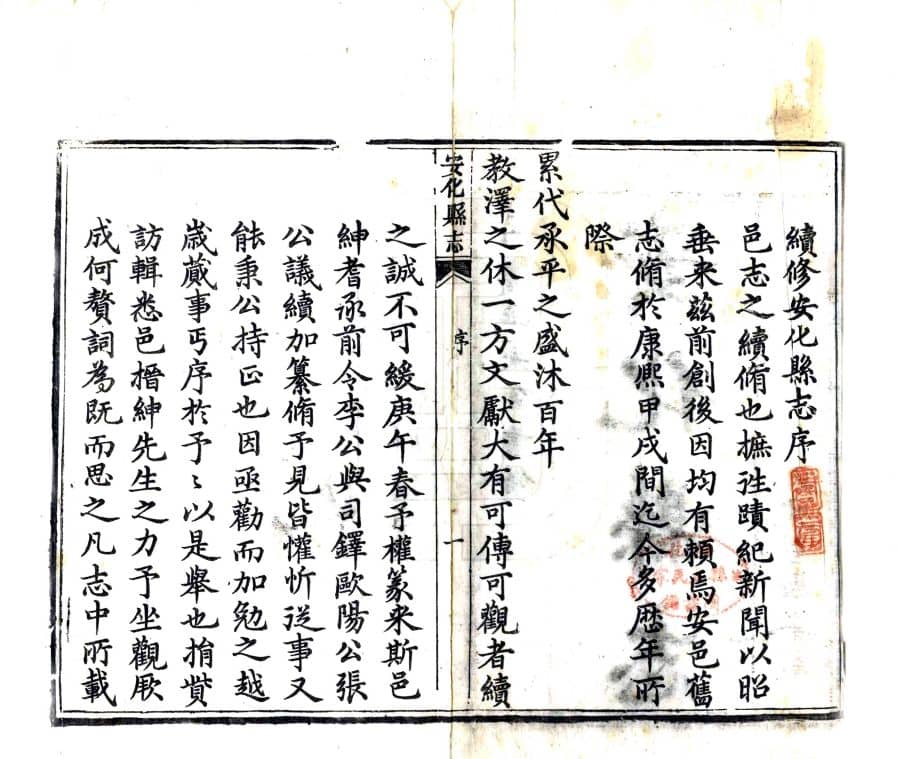 續修安化縣志序
邑志之續脩也摭徃蹟紀新聞以昭
垂来茲前創後因均有賴焉安邑舊
志脩於康熙甲戌間迄今多歷年所
際
累代承平之盛沐百年
教澤之休一方文獻大有可傳可觀者續
安化縣志
序
一
之誠不可緩庚午春予權篆来斯邑
紳耆承前令李公與司鐸歐陽公張
公議續加纂脩予見皆懽忻從事又
能秉公持正也因亟勸而加勉之越
歲蕆事丐序於予〻以是舉也捐貲
訪輯悉邑搢紳先生之力予坐觀厥
成何贅詞為既而思之凡志中所載